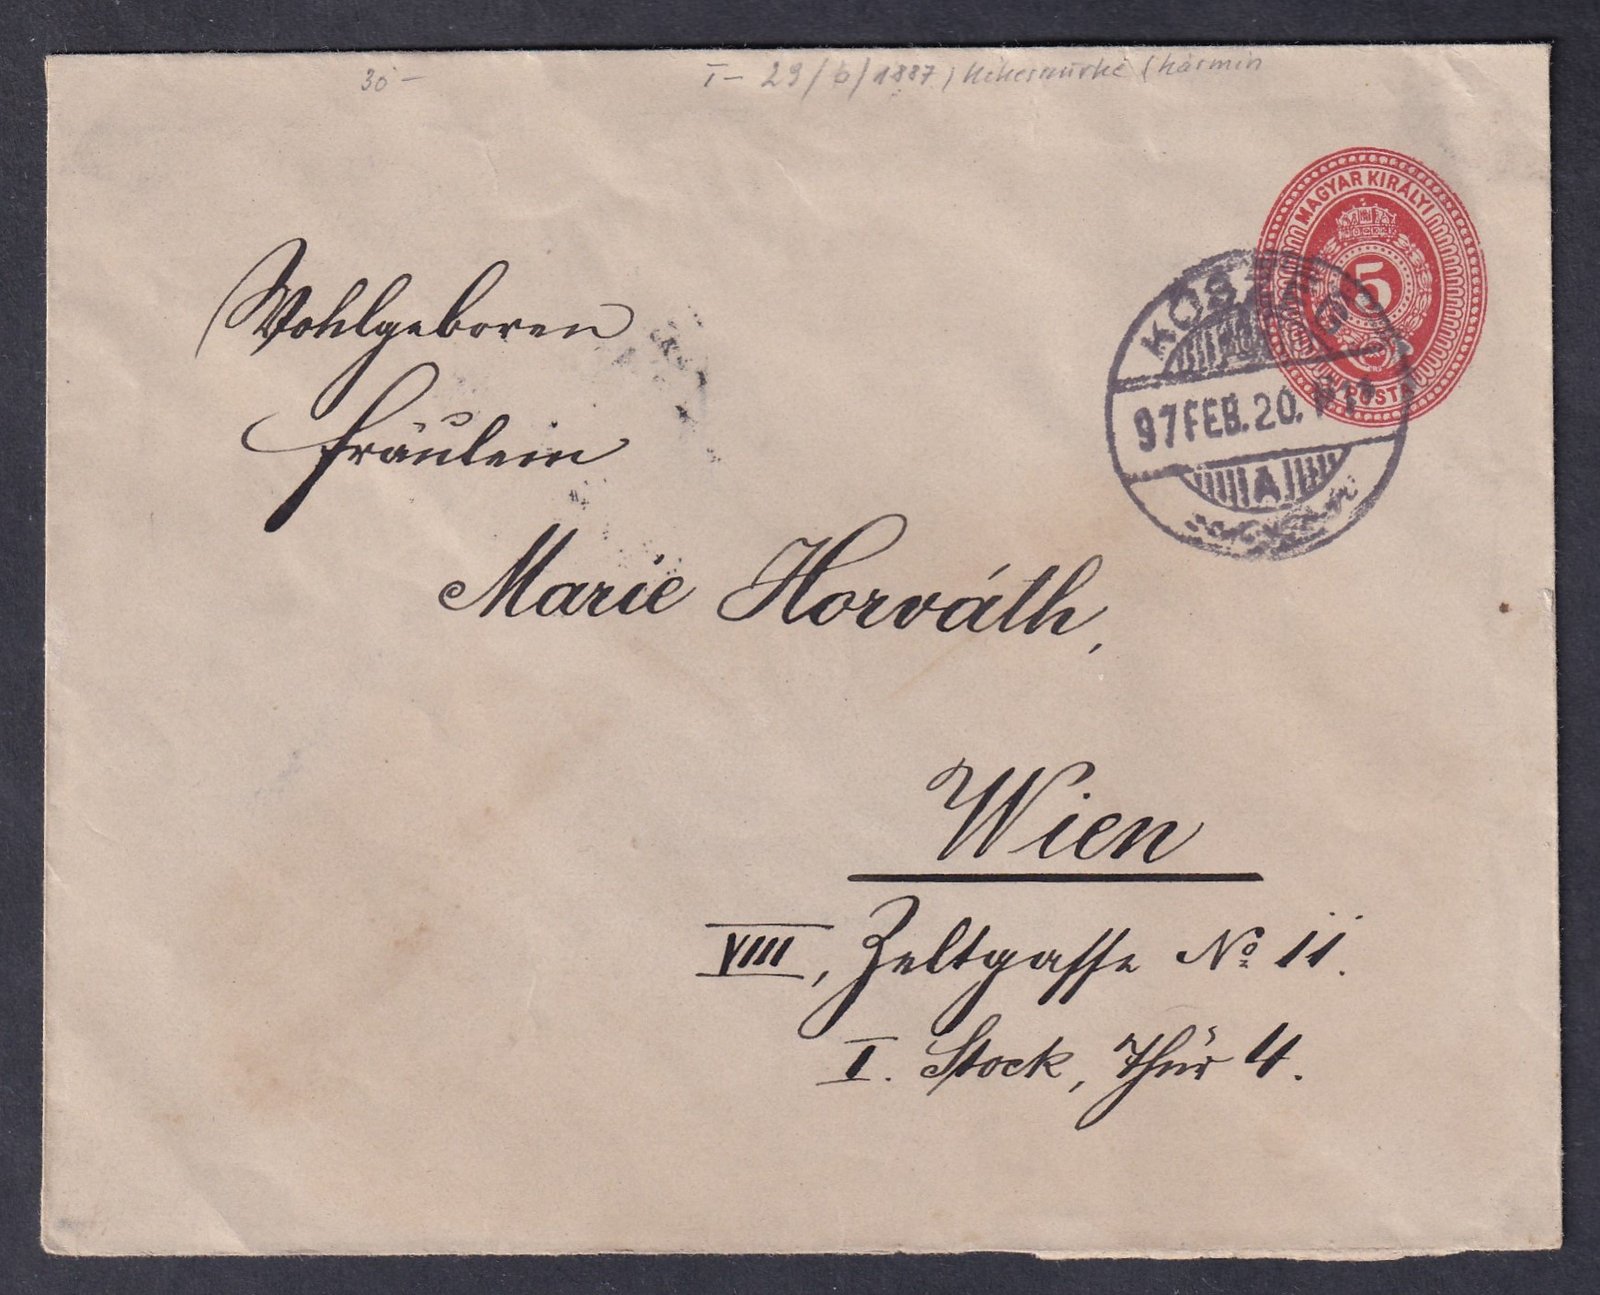 30 –
I – 29/b/1887
MAGYAR KIRÁLYI
5
POSTA
97 FEB. 20.
A
Wohlgeboren
Fräulein
Marie Horváth,
Wien
VIII, Zeltgasse No 11.
I. Stock, Thür 4.